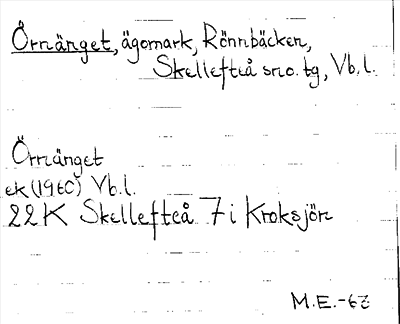 Örnänget, ägomark, Rönnbäcken,
Skellefteå sno. tg, Vb.l.
Örnänget
ek (1960) Vb.l.
22K Skellefteå 7i Kroksjön
M.E.-67